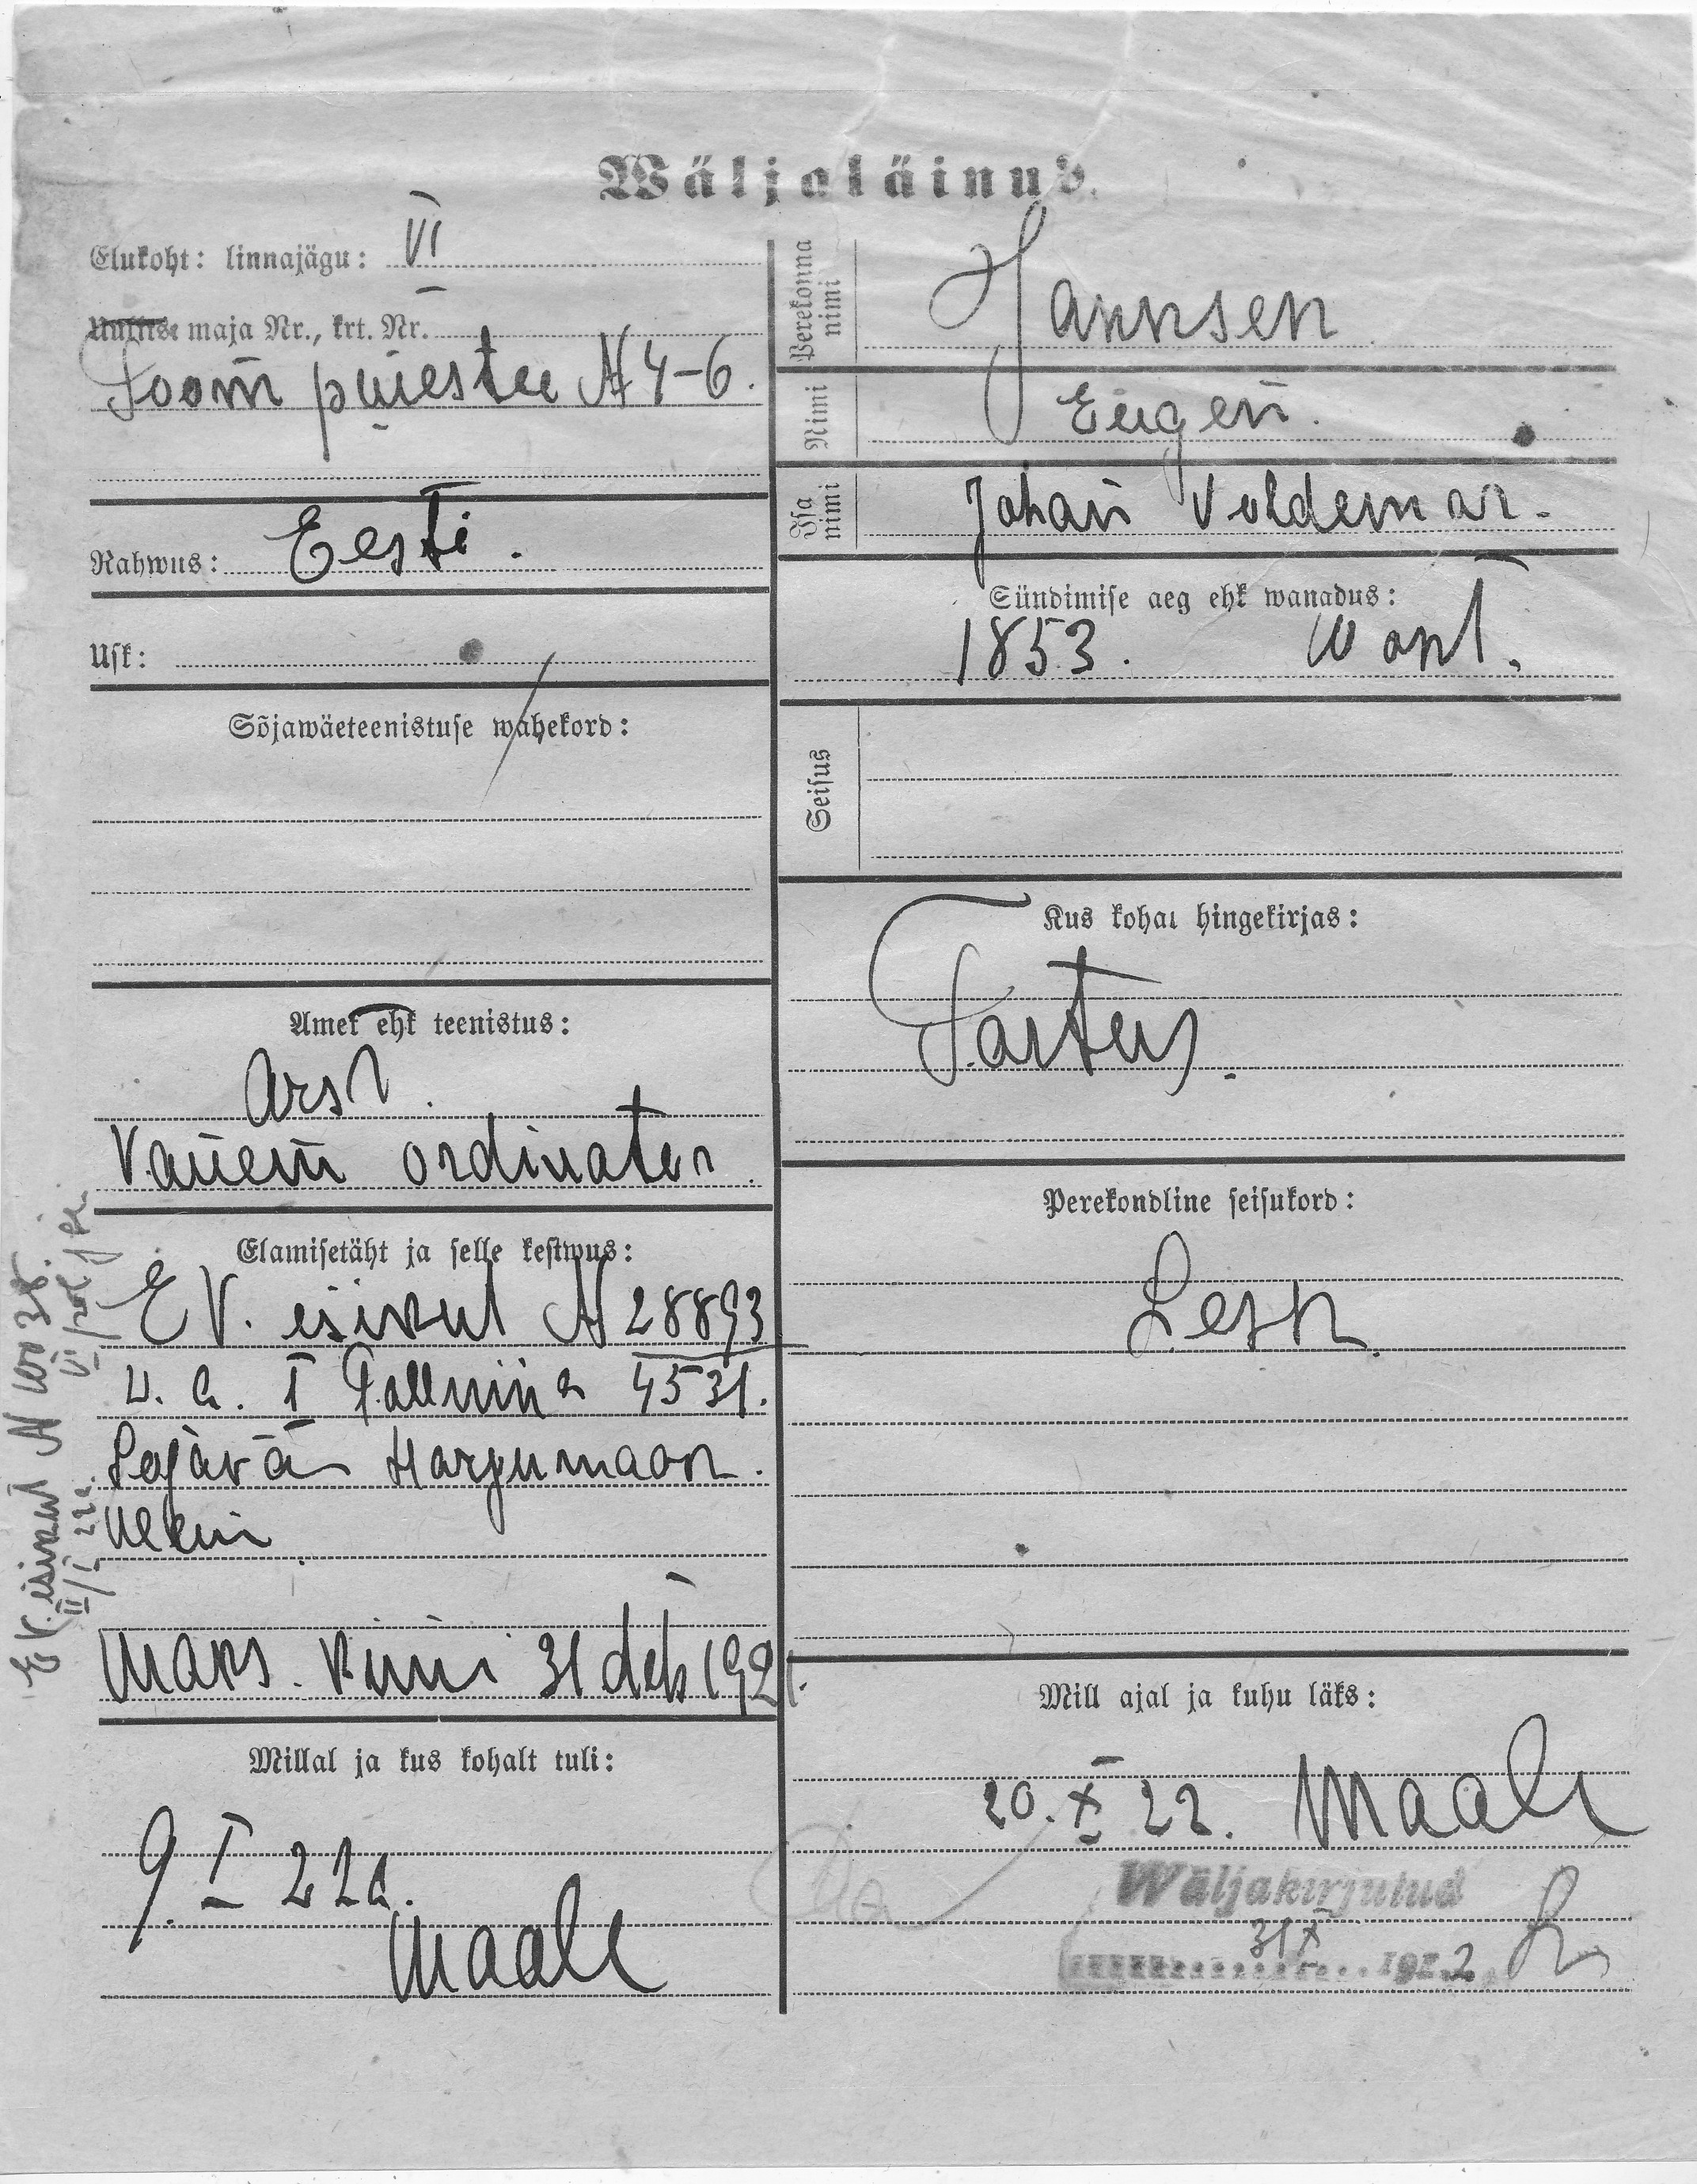 Wäljaläinud.
Elukoht: linnajägu: VI
maja Nr., krt. Nr.
Toom puiestee N 4-6.
Rahwus: Eesti.
Usk:
Sõjawäeteenistuse wahekord:
Amet ehk teenistus:
Arst.
Vanem ordinator
Elamisetäht ja selle kestwus:
E V. isikut N 28893
v. a. I Tallinna 4531.
Harjumaa
maks. kuni 31 dets 1921.
Millal ja kus kohalt tuli:
9. I 22 a.
Maalt
E V. isikut N
II/I 22 a.
Perekonna nimi
Hannsen
Nimi
Eugen.
Isa nimi
Johan Voldemar.
Sündimise aeg ehk wanadus:
1853.
Seisus
Kus kohal hingekirjas:
Tartus.
Perekondline seisukord:
Lesk.
Mill ajal ja kuhu läks:
20. X 22. Maale
Wäljakirjutud
31 X
192.2